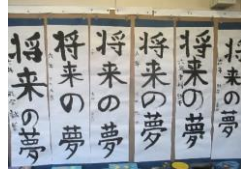 将来の夢
将来の夢
将来の夢
将来の夢
将来の夢
将来の夢